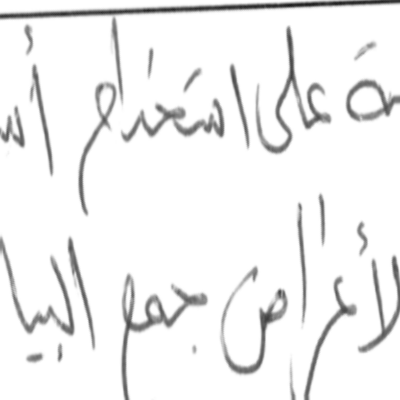 ـة على استخدام أسـ
لأغراض جمع البيا